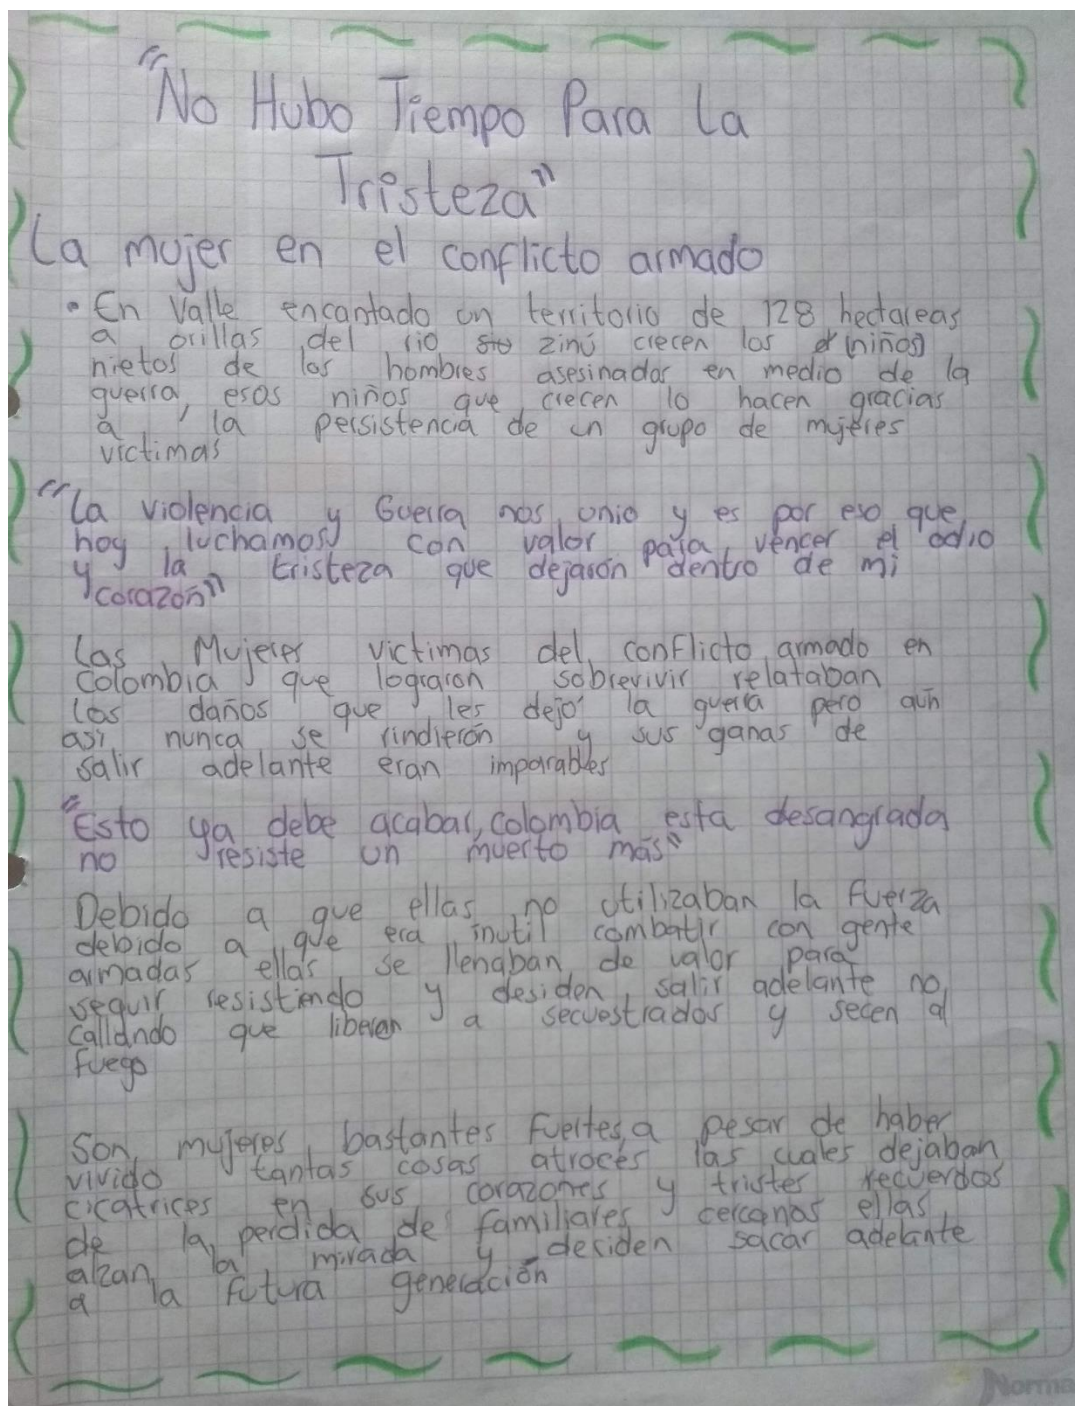 "No Hubo Tiempo Para La
Tristeza"
La mujer en el conflicto armado
• En Valle encantado un territorio de 128 hectareas
a orillas del rio zinú crecen los (niños)
nietos de los hombres asesinados en medio de la
guerra, esos niños que crecen lo hacen gracias
a la persistencia de un grupo de mujeres
victimas
"La violencia y Guerra nos unio y es por eso que
hoy luchamos con valor para vencer el odio
y la tristeza que dejarón dentro de mi
corazón"
Las Mujeres victimas del conflicto armado en
Colombia que lograron sobrevivir relataban
los daños que les dejó la guerra pero aún
asi nunca se rindierón y sus ganas de
salir adelante eran imparables
"Esto ya debe acabar, colombia esta desangrada
no resiste un muerto más"
Debido a que ellas no utilizaban la fuerza
debido a que era inutil combatir con gente
armadas ellas se llenaban de valor para
seguir resistiendo y desiden salir adelante no
callando que liberen a secuestrados y secen al
fuego
Son mujeres bastantes fuertes, a pesar de haber
vivido tantas cosas atroces las cuales dejaban
cicatrices en sus corazones y tristes recuerdos
de la perdida de familiares cercanos ellas
alzan la mirada y deciden sacar adelante
a la futura generación
Norma